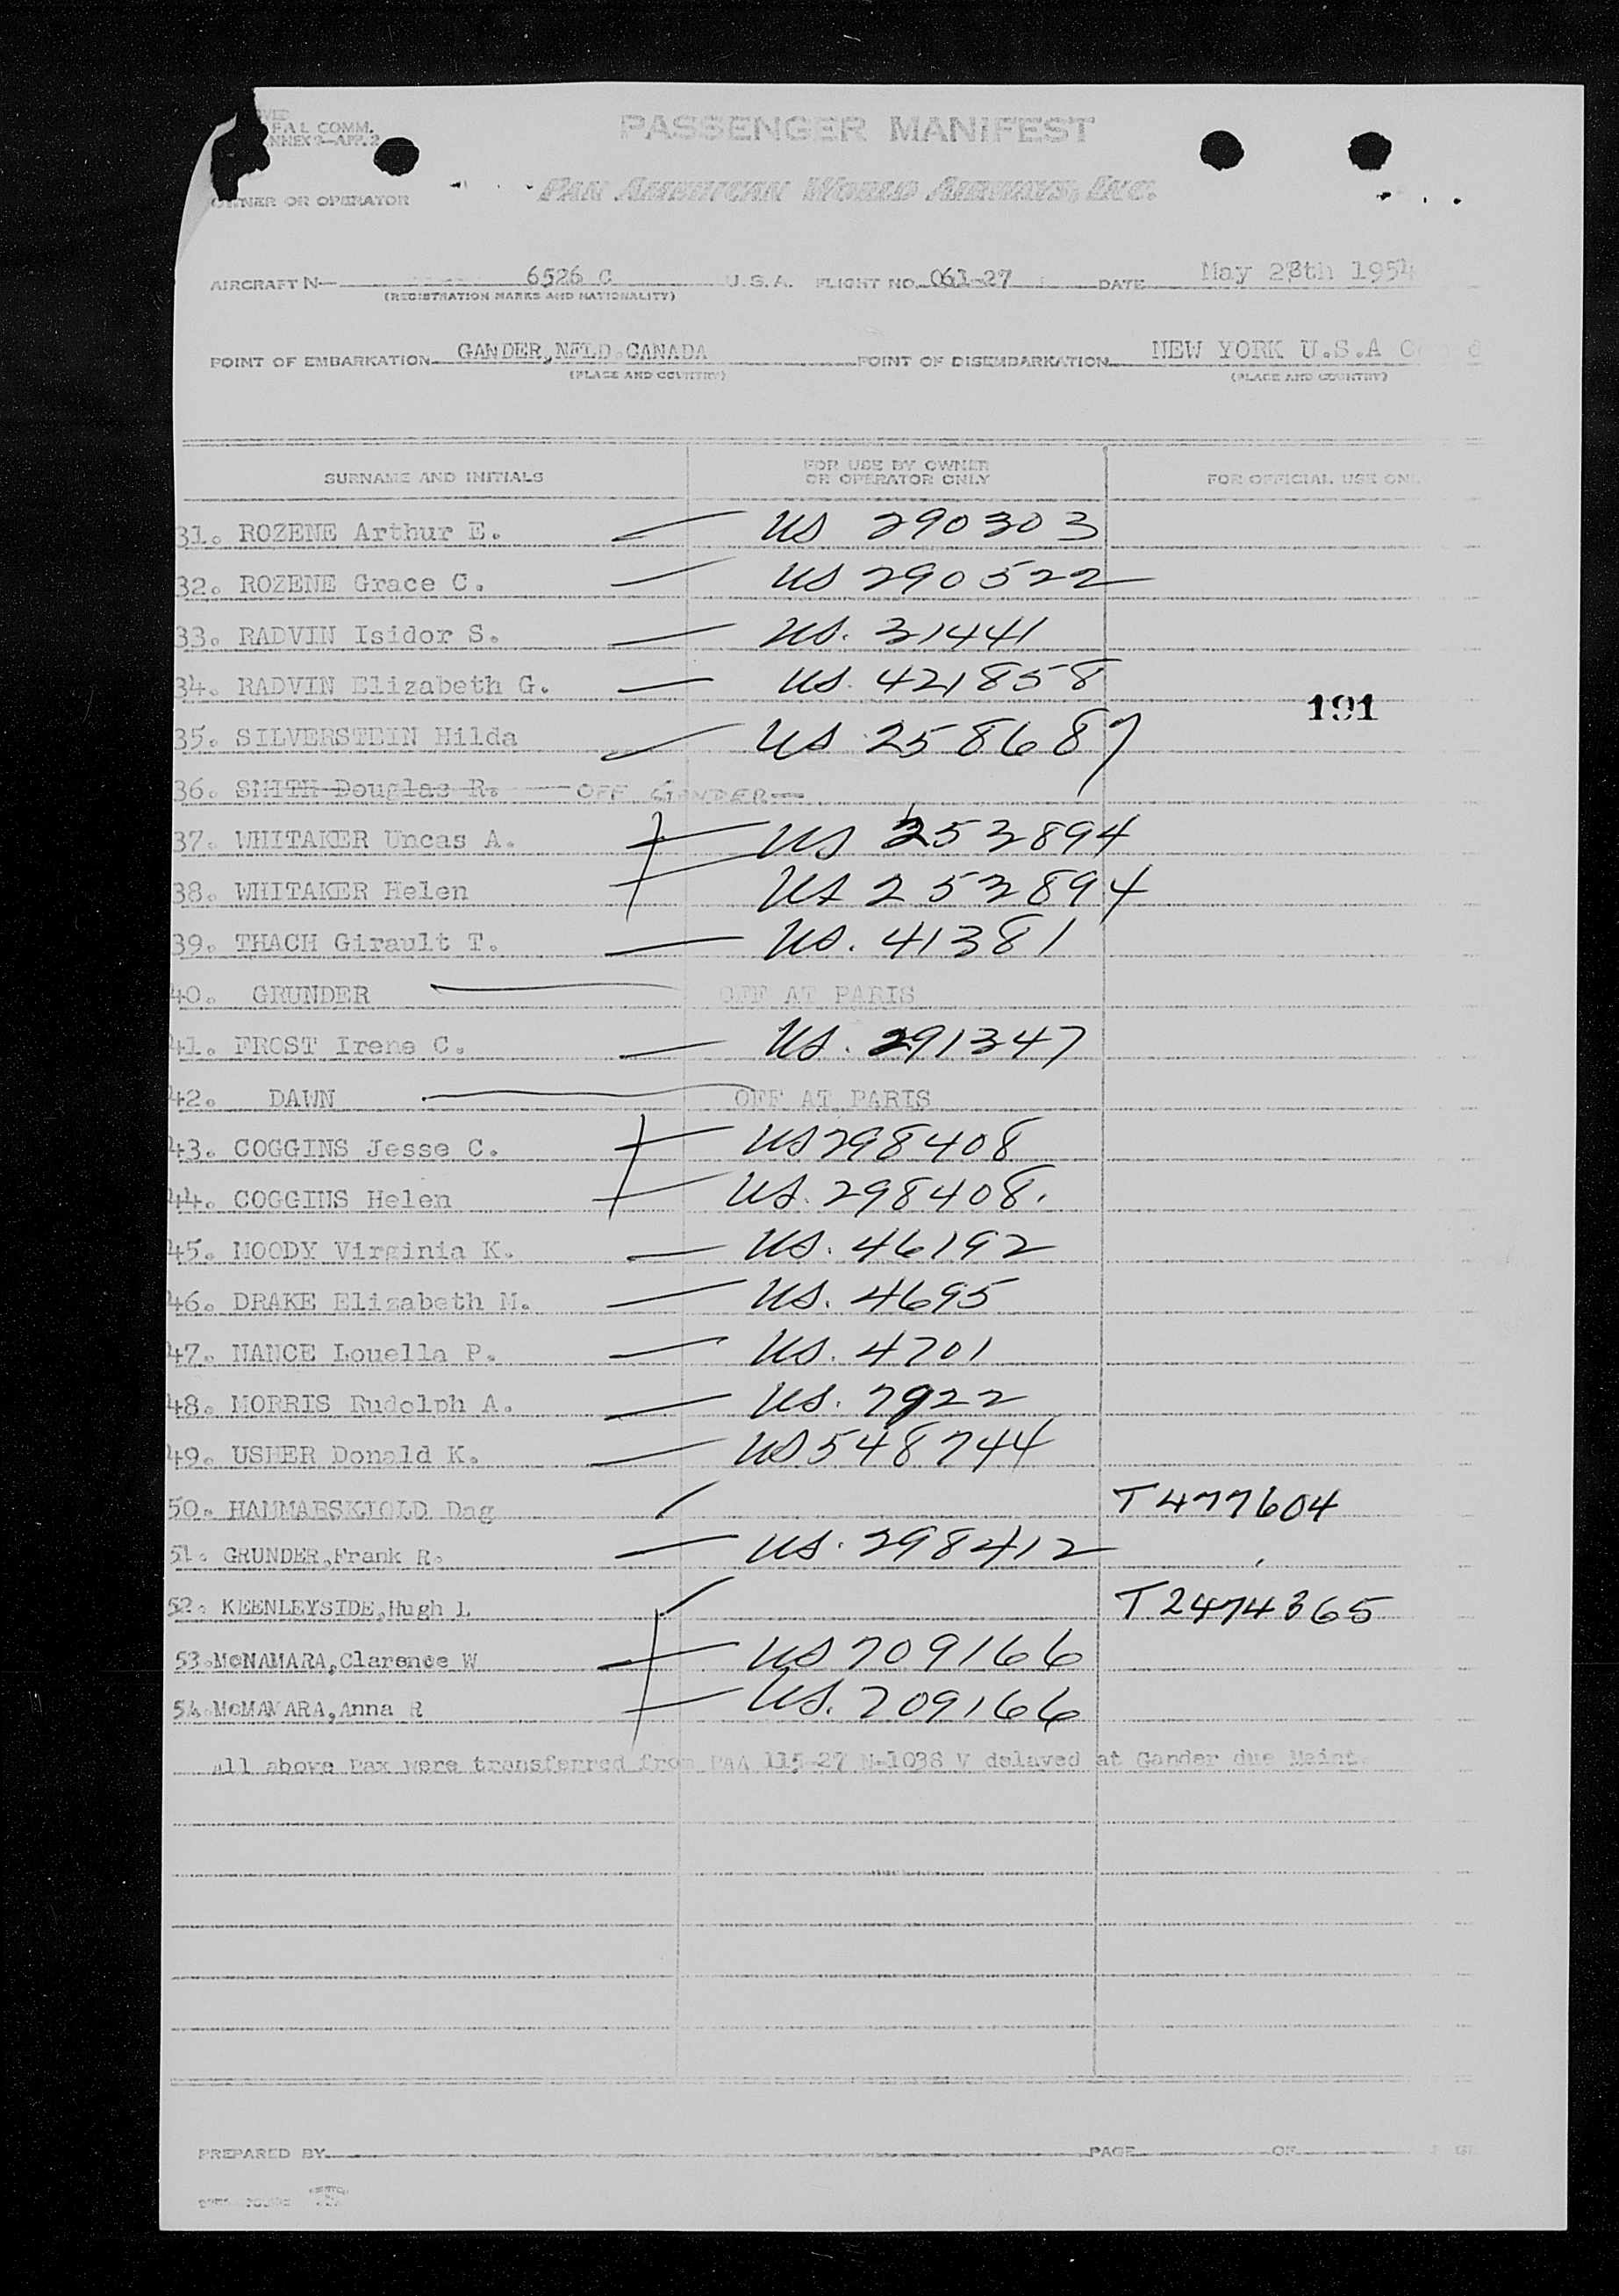 FAL COMM.
ANNEX 9—APP. 2
PASSENGER MANIFEST
OWNER OR OPERATOR PAN AMERICAN WORLD AIRWAYS, INC.
AIRCRAFT N— 6526 C U.S.A. FLIGHT NO. 061-27 DATE May 28th 1954
(REGISTRATION MARKS AND NATIONALITY)
POINT OF EMBARKATION GANDER, NFLD CANADA POINT OF DISEMBARKATION NEW YORK U.S.A
(PLACE AND COUNTRY) (PLACE AND COUNTRY)
SURNAME AND INITIALS FOR USE BY OWNER OR OPERATOR ONLY FOR OFFICIAL USE ONL
31. ROZENE Arthur E. US 290303
32. ROZENE Grace C. US 290522
33. RADVIN Isidor S. US. 31441
34. RADVIN Elizabeth G. US. 421858
191
35. SILVERSTEIN Hilda US 258687
36. SMITH Douglas R. — OFF GANDER —
37. WHITAKER Uncas A. US 253894
38. WHITAKER Helen US 253894
39. THACH Girault T. US. 41381
40. GRUNDER OFF AT PARIS
41. FROST Irene C. US. 291347
42. DAWN OFF AT PARIS
43. COGGINS Jesse C. US 298408
44. COGGINS Helen US. 298408.
45. MOODY Virginia K. US. 46192
46. DRAKE Elizabeth M. US. 4695
47. NANCE Louella P. US. 4701
48. MORRIS Rudolph A. US. 7922
49. USHER Donald K. US 548744
50. HAMMARSKJOLD Dag T477604
51. GRUNDER, Frank R. US. 298412
52. KEENLEYSIDE, Hugh L T2474365
53. McNAMARA, Clarence W US 709166
54. McMAMARA, Anna R US. 709166
All above Pax were transferred from PAA 115-27 N-1038 V delayed at Gander due Maint.
PREPARED BY PAGE OF